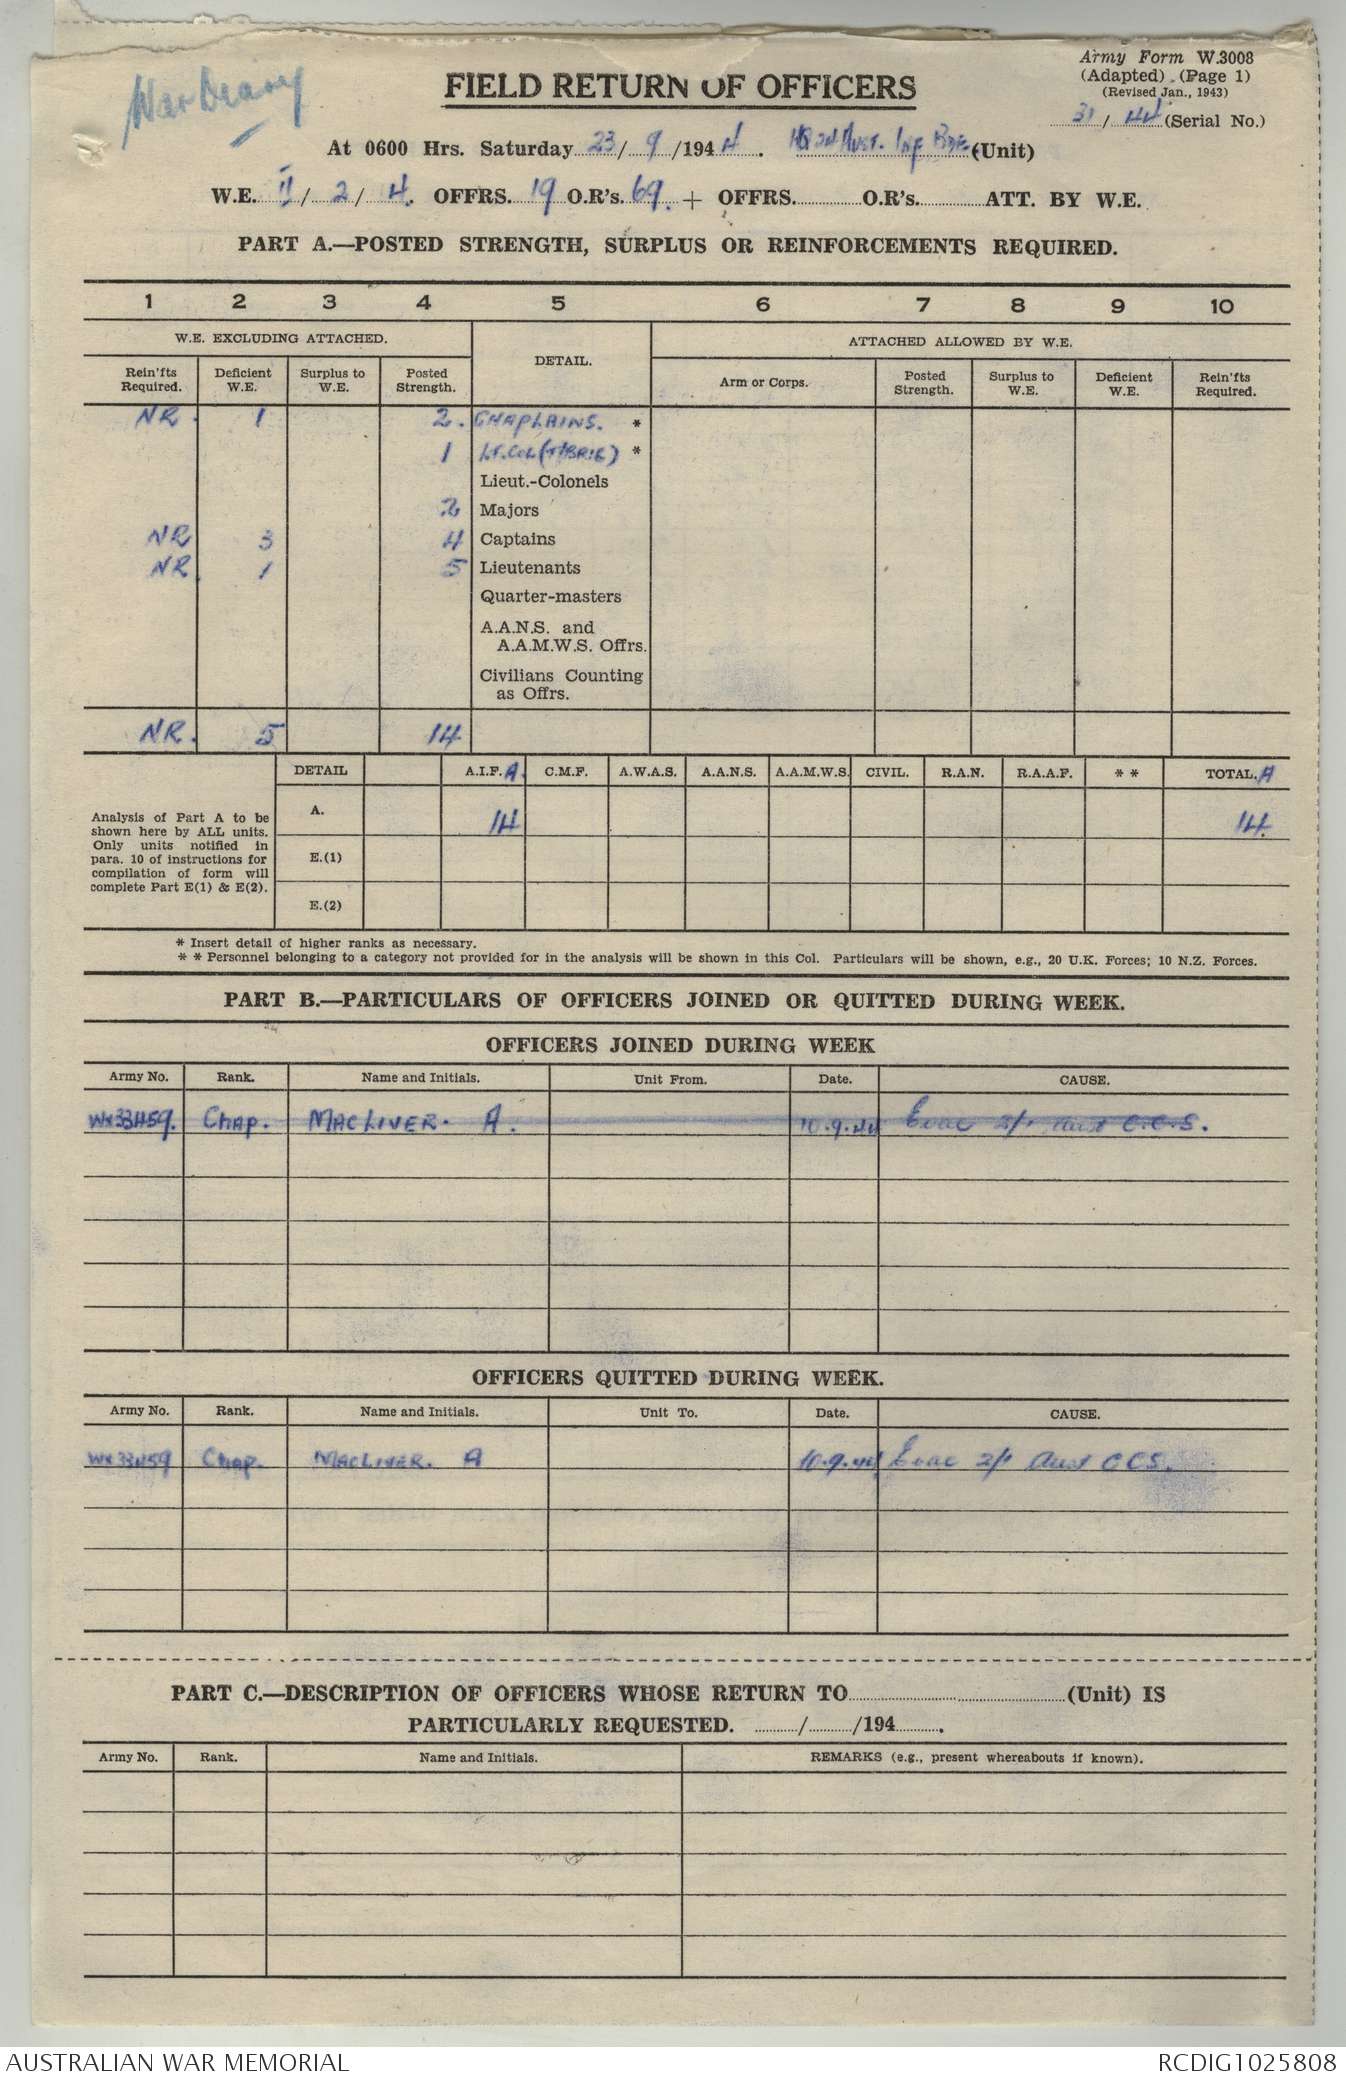 War Diary
Army Form W.3008
(Adapted) (Page 1)
(Revised Jan., 1943)
31/44 (Serial No.)
FIELD RETURN OF OFFICERS
At 0600 Hrs. Saturday 23/9/1944. HQ 24 Aust. Inf Bde (Unit)
W.E. II/2/4. OFFRS. 19 O.R's. 69. + OFFRS. O.R's. ATT. BY W.E.
PART A.—POSTED STRENGTH, SURPLUS OR REINFORCEMENTS REQUIRED.
1 2 3 4 5 6 7 8 9 10
W.E. EXCLUDING ATTACHED. DETAIL. ATTACHED ALLOWED BY W.E.
Rein'fts Required. Deficient W.E. Surplus to W.E. Posted Strength. Arm or Corps. Posted Strength. Surplus to W.E. Deficient W.E. Rein'fts Required.
NR. 1 2. CHAPLAINS. *
1 Lt. Col (T/BRIG) *
Lieut.-Colonels
2 Majors
NR 3 4 Captains
NR. 1 5 Lieutenants
Quarter-masters
A.A.N.S. and
A.A.M.W.S. Offrs.
Civilians Counting
as Offrs.
NR. 5 14
DETAIL A.I.F. A. C.M.F. A.W.A.S. A.A.N.S. A.A.M.W.S. CIVIL. R.A.N. R.A.A.F. * * TOTAL. A
A. 14 14
Analysis of Part A to be
shown here by ALL units.
Only units notified in
para. 10 of instructions for
compilation of form will
complete Part E(1) & E(2).
E.(1)
E.(2)
* Insert detail of higher ranks as necessary.
* * Personnel belonging to a category not provided for in the analysis will be shown in this Col. Particulars will be shown, e.g., 20 U.K. Forces; 10 N.Z. Forces.
PART B.—PARTICULARS OF OFFICERS JOINED OR QUITTED DURING WEEK.
OFFICERS JOINED DURING WEEK
Army No. Rank. Name and Initials. Unit From. Date. CAUSE.
WX33459. CHAP. MACLIVER. A. 10.9.44 Evac 2/1 Aust C.C.S.
OFFICERS QUITTED DURING WEEK.
Army No. Rank. Name and Initials. Unit To. Date. CAUSE.
WX33459 CHAP. MACLIVER. A 10.9.44 Evac 2/1 Aust CCS.
PART C.—DESCRIPTION OF OFFICERS WHOSE RETURN TO (Unit) IS
PARTICULARLY REQUESTED. / /194 .
Army No. Rank. Name and Initials. REMARKS (e.g., present whereabouts if known).
AUSTRALIAN WAR MEMORIAL RCDIG1025808